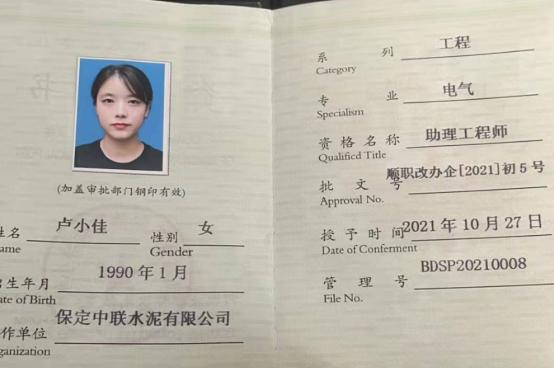 (加盖审批部门钢印有效)
姓名 卢小佳 性别 女
ame Gender
出生年月 1990年1月
ate of Birth
作单位 保定中联水泥有限公司
ganization
系列 工程
Category
专业 电气
Specialism
资格名称 助理工程师
Qualified Title
批文号 顺职改办企[2021]初5号
Approval No.
授予时间 2021年10月27日
Date of Conferment
管理号 BDSP20210008
File No.